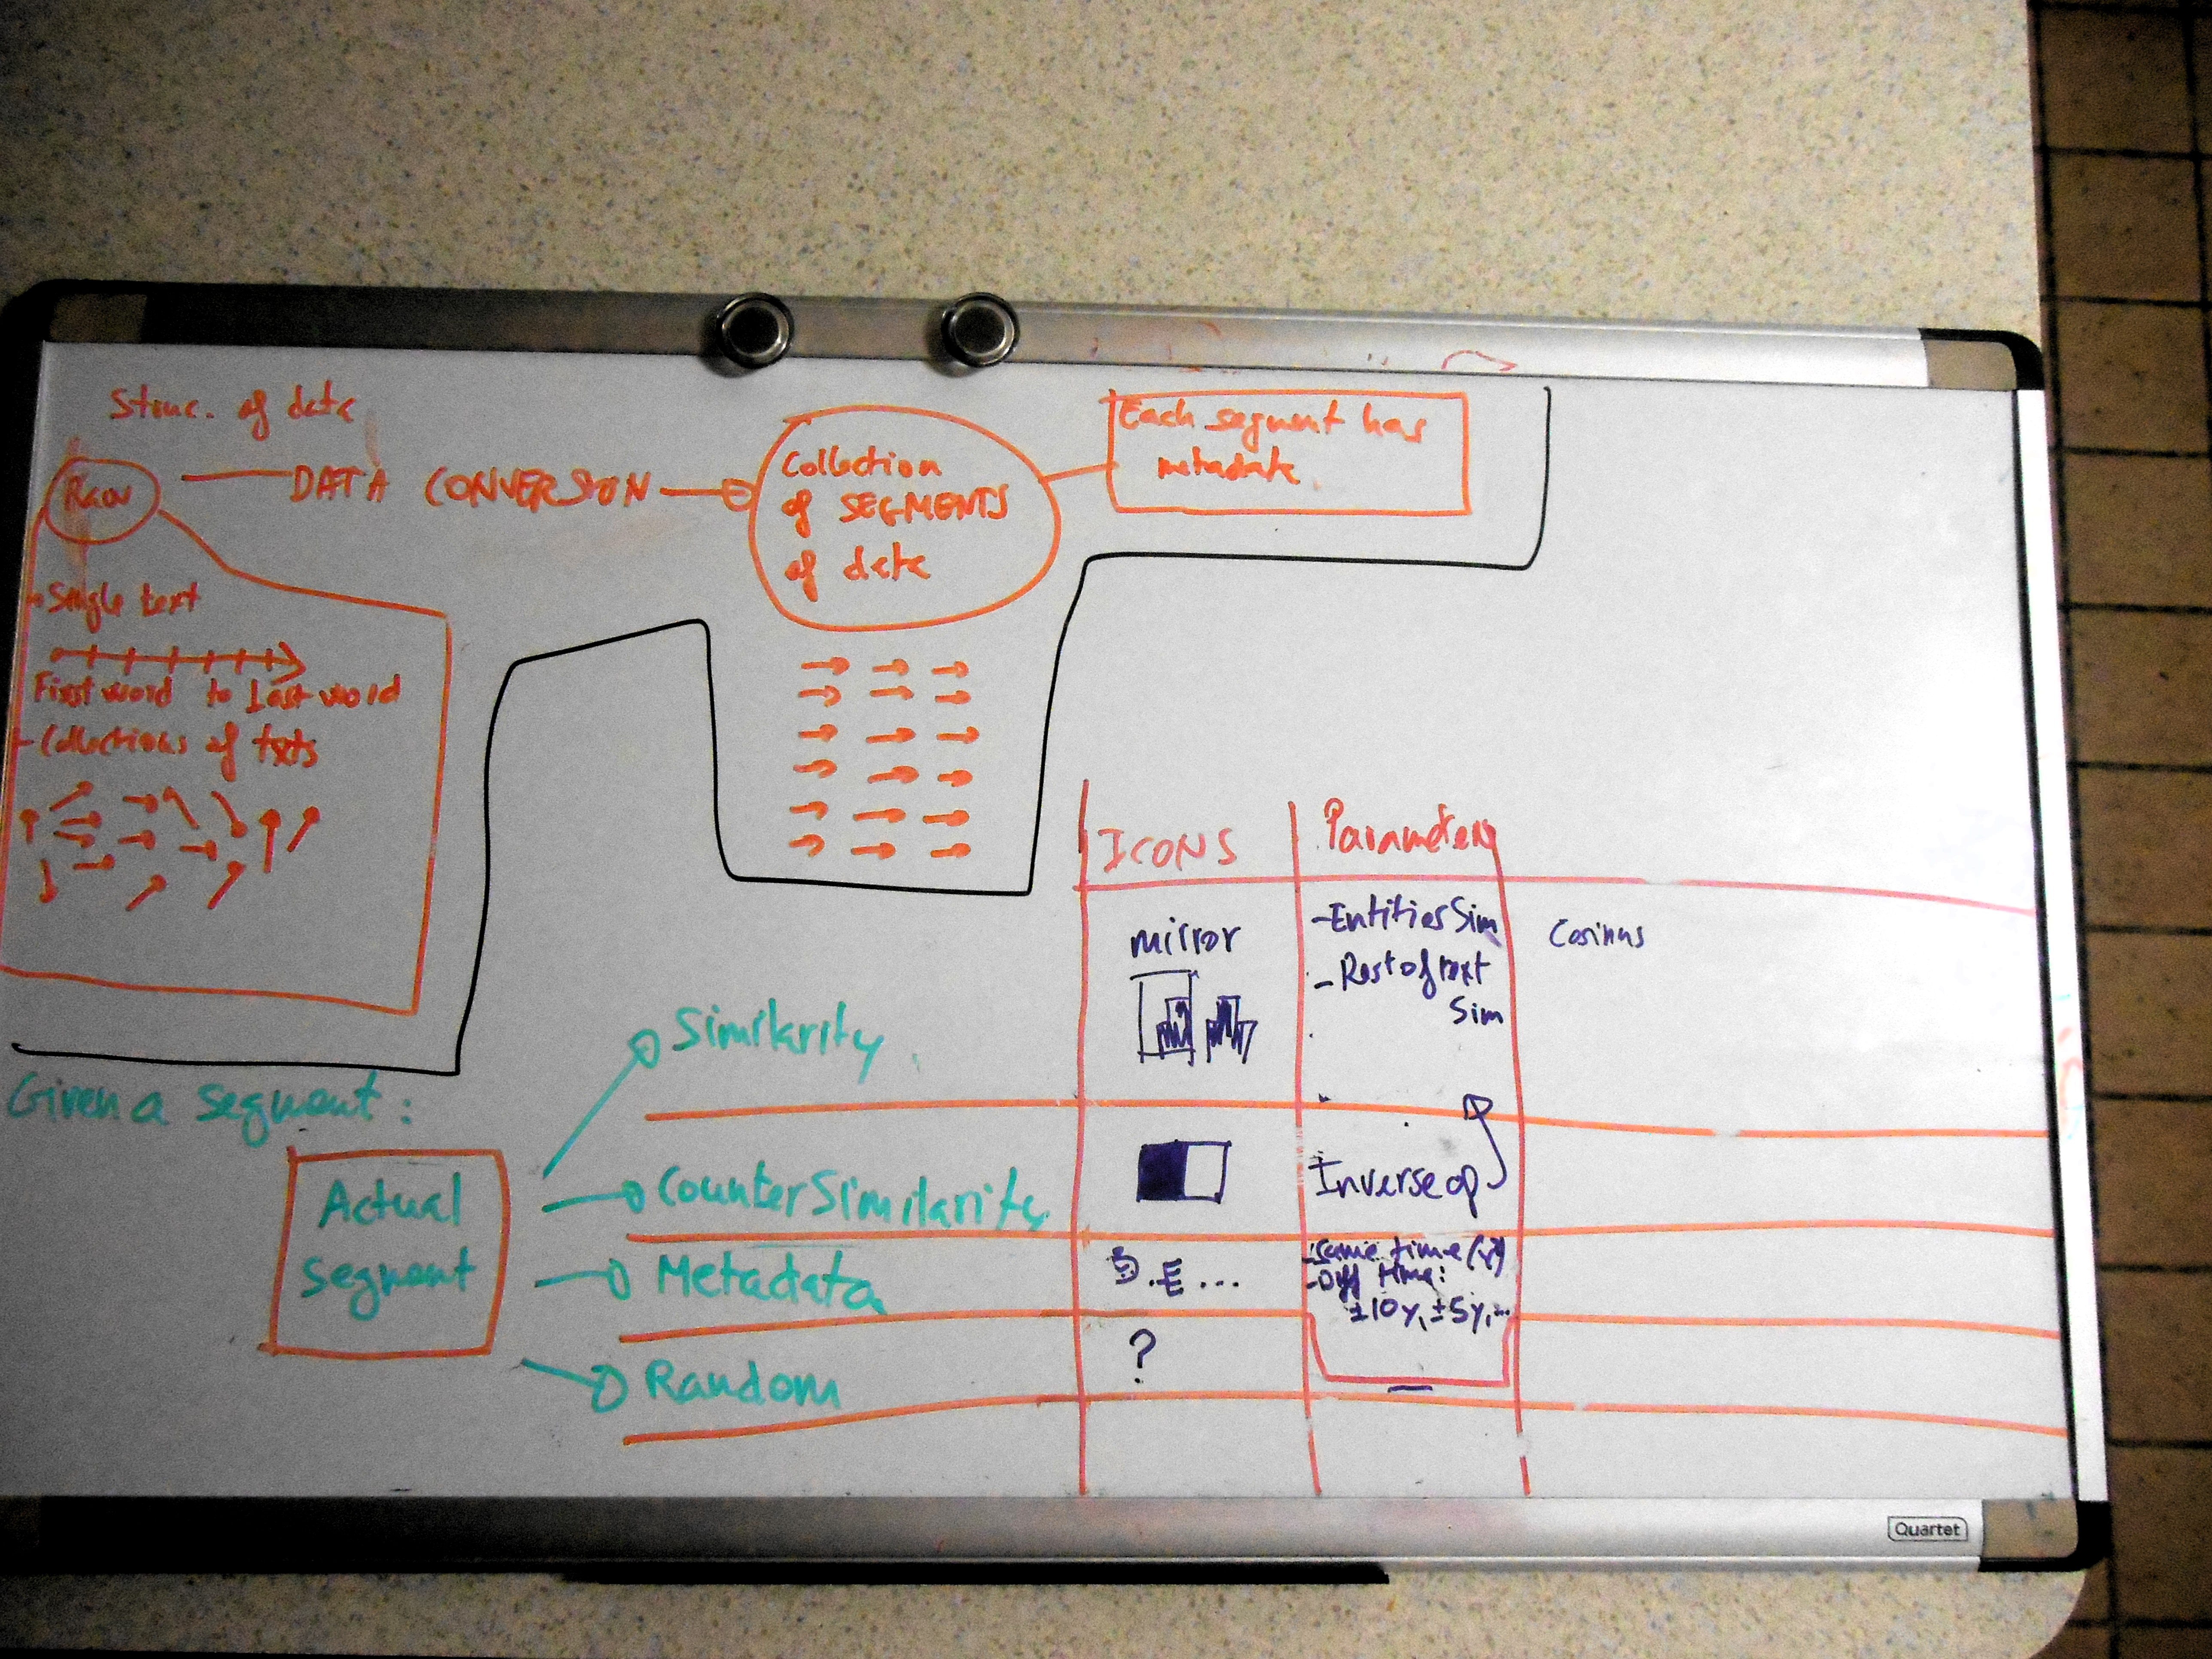 Struc. of data
Raw
DATA CONVERSION
Collection
of SEGMENTS
of data
Each segment has
metadata
- Single text
First word to Last word
- Collections of txts
Given a segment:
Actual
segment
Similarity
CounterSimilarity
Metadata
Random
ICONS
Parameters
mirror
- Entities Sim
- Rest of text
Sim
Cosinus
Inverse op
- same time (y)
- Diff time:
±10y, ±5y, ...
?
Quartet